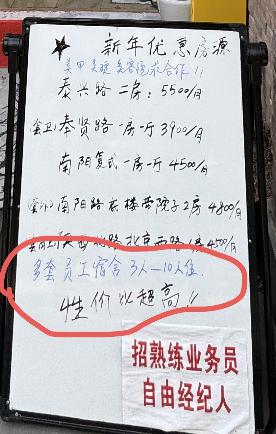 新年优惠房源
美甲 美睫 美容 寻求合作!!
泰兴路 二房:5500/月
奉贤路 一房一厅 3900/月
南阳复式 一房一厅 4500/月
南阳路 底楼带院子2房 4800/月
北京西路 4500/月
多套员工宿舍 3人—10人住.
性价比超高!!
招熟练业务员
自由经纪人